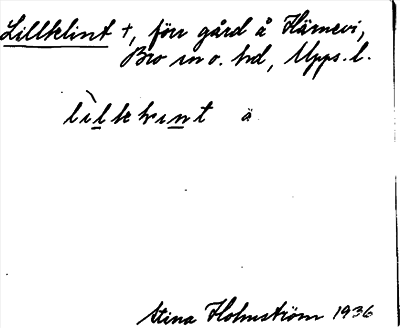 Lillklint †, förr gård å Härnevi,
Bro sn o. hd, Upps. l.
lìlkḷint ä
Stina Holmström 1936